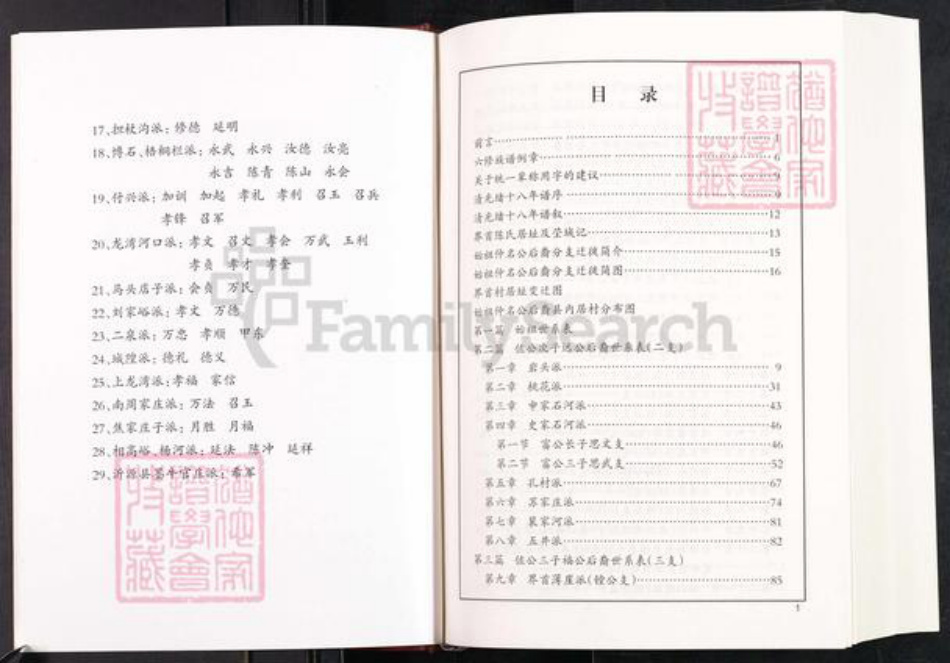 17、担杖沟派：修德 延明
18、博石、梧桐栏派：永武 永兴 汝德 汝亮
永吉 陈青 陈山 永会
19、付兴派：加训 加起 孝礼 孝利 召玉 召兵
孝锋 召军
20、龙湾河口派：孝文 召文 孝会 万武 玉利
孝贞 孝才 孝奎
21、马头店子派：会贞 万民
22、刘家峪派：孝文 万德
23、二泉派：万忠 孝顺 甲东
24、城隍派：德礼 德义
25、上龙湾派：孝福 家信
26、南周家庄派：万法 召玉
27、焦家庄子派：月胜 月福
28、相高峪、杨河派：延法 陈冲 延祥
29、沂源县墨牛官庄派：希军
目 录
前言……1
六修族谱例章……6
关于统一辈称用字的建议……9
清光绪十八年谱序……9
清光绪十八年谱叙……12
界首陈氏居址及茔域记……13
始祖仲名公后裔分支迁徙简介……15
始祖仲名公后裔分支迁徙简图……16
界首村居址变迁图
始祖仲名公后裔县内居村分布图
第一篇 始祖世系表
第二篇 伍公次子远公后裔世系表(二支)
第一章 岩头派……9
第二章 桃花派……31
第三章 申家石河派……43
第四章 史家石河派……46
第一节 富公长子思文支……46
第二节 富公三子思武支……52
第五章 孔村派……67
第六章 苏家庄派……74
第七章 裴家河派……81
第八章 五井派……82
第三篇 伍公三子福公后裔世系表(三支)
第九章 界首薄崖派(镗公支)……85
1
FamilySearch